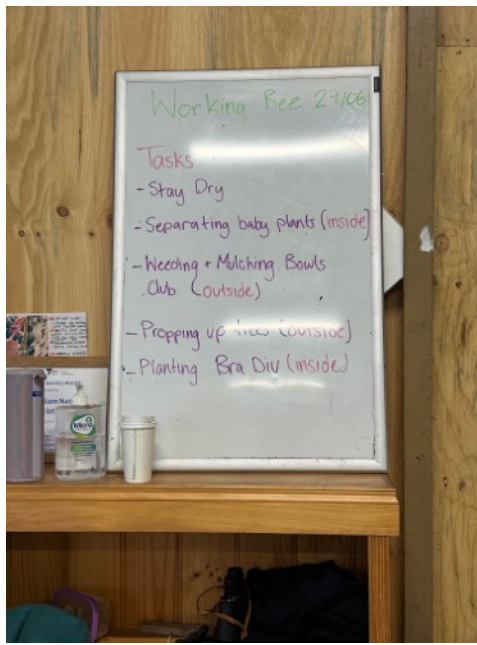 Working Bee 24/06
Tasks
- Stay Dry
- Separating baby plants (inside)
- Weeding + Mulching Bowls
Club (outside)
- Propping up (outside)
- Planting Bra Div (inside)
Micro